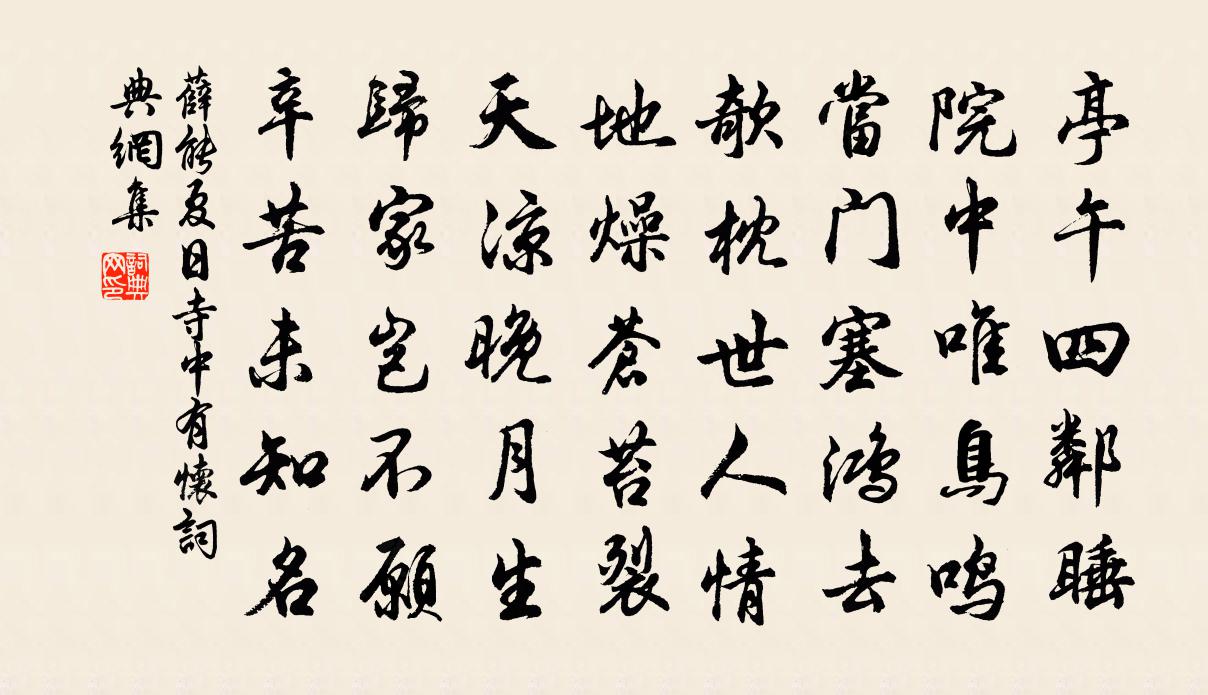 亭午四鄰睡
院中唯鳥鳴
當門塞鴻去
欹枕世人情
地燥蒼苔裂
天涼晚月生
歸家豈不願
辛苦未知名
薛能夏日寺中有懷詞
典網集
詞典
网印